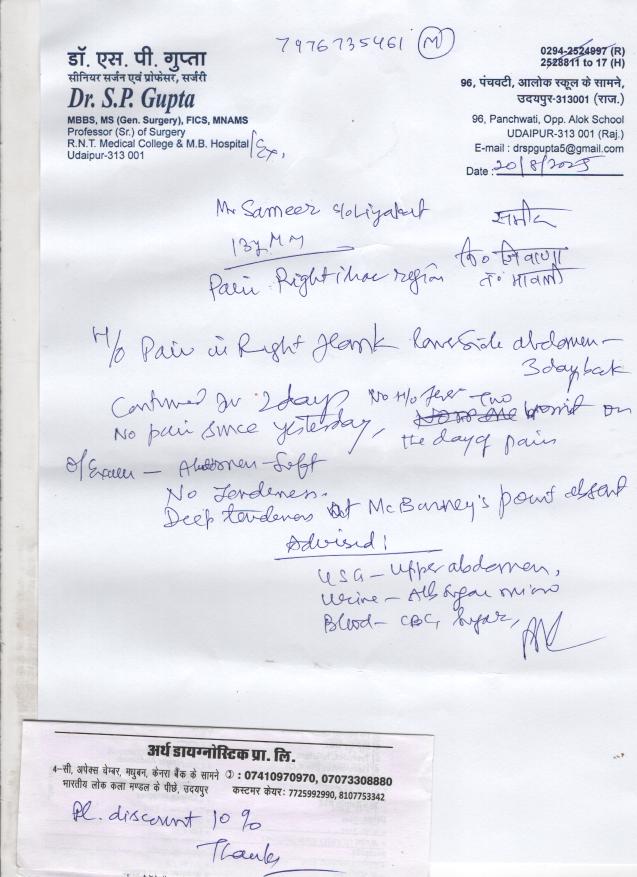 7976735461 (M)
डॉ. एस. पी. गुप्ता
सीनियर सर्जन एवं प्रोफेसर, सर्जरी
Dr. S.P. Gupta
MBBS, MS (Gen. Surgery), FICS, MNAMS
Professor (Sr.) of Surgery
R.N.T. Medical College & M.B. Hospital /Ex,
Udaipur-313 001
0294-2524997 (R)
2528811 to 17 (H)
96, पंचवटी, आलोक स्कूल के सामने,
उदयपुर-313001 (राज.)
96, Panchwati, Opp. Alok School
UDAIPUR-313 001 (Raj.)
E-mail : drspgupta5@gmail.com
Date : 20/8/2025
Mr Sameer s/o Liyakat
13y M M
Pain Right iliac region
H/o Pain in Right flank lower side abdomen -
3 day back
Continued for 2 days No H/o fever Two
vomit on
No pain since yesterday, the day of pain
O/Exam - Abdomen - Soft
No Tenderness.
Deep tenderness at McBurney's point absent
Advised :
USG - Upper abdomen,
Urine - Alb sugar micro
Blood - CBC, Sugar,
अर्थ डायग्नोस्टिक प्रा. लि.
4-सी, अपेक्स चेम्बर, मधुबन, केनरा बैंक के सामने : 07410970970, 07073308880
भारतीय लोक कला मण्डल के पीछे, उदयपुर कस्टमर केयर: 7725992990, 8107753342
Pl. discount 10 %
Thanks